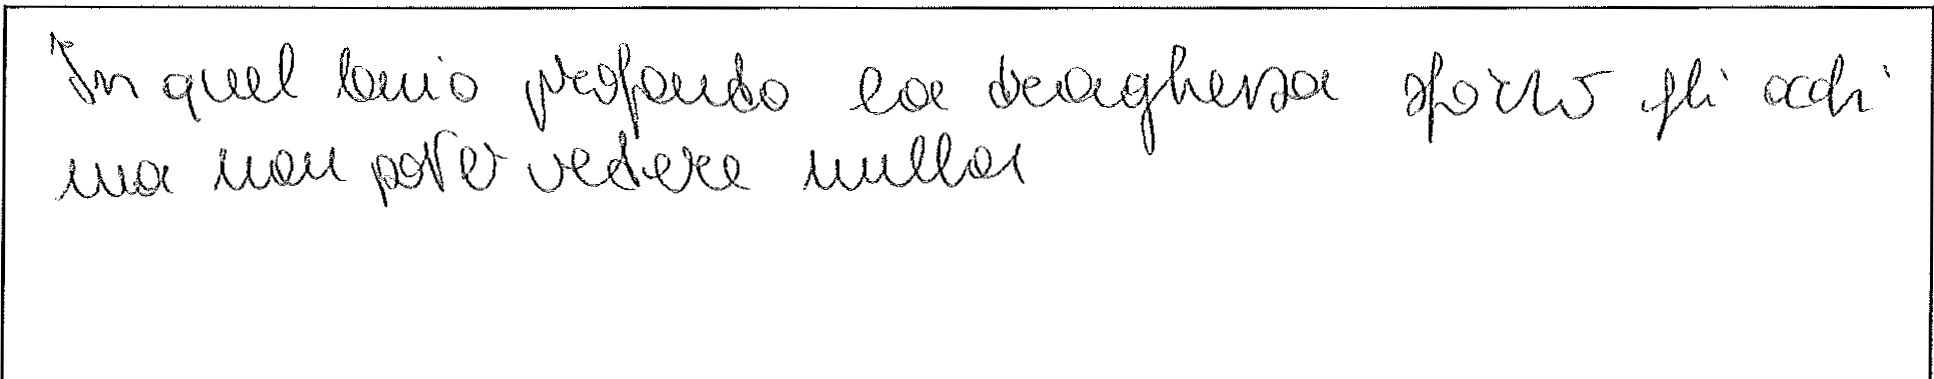 In quel buio profondo la draghessa sforzò gli occhi
ma non poter vedere nulla